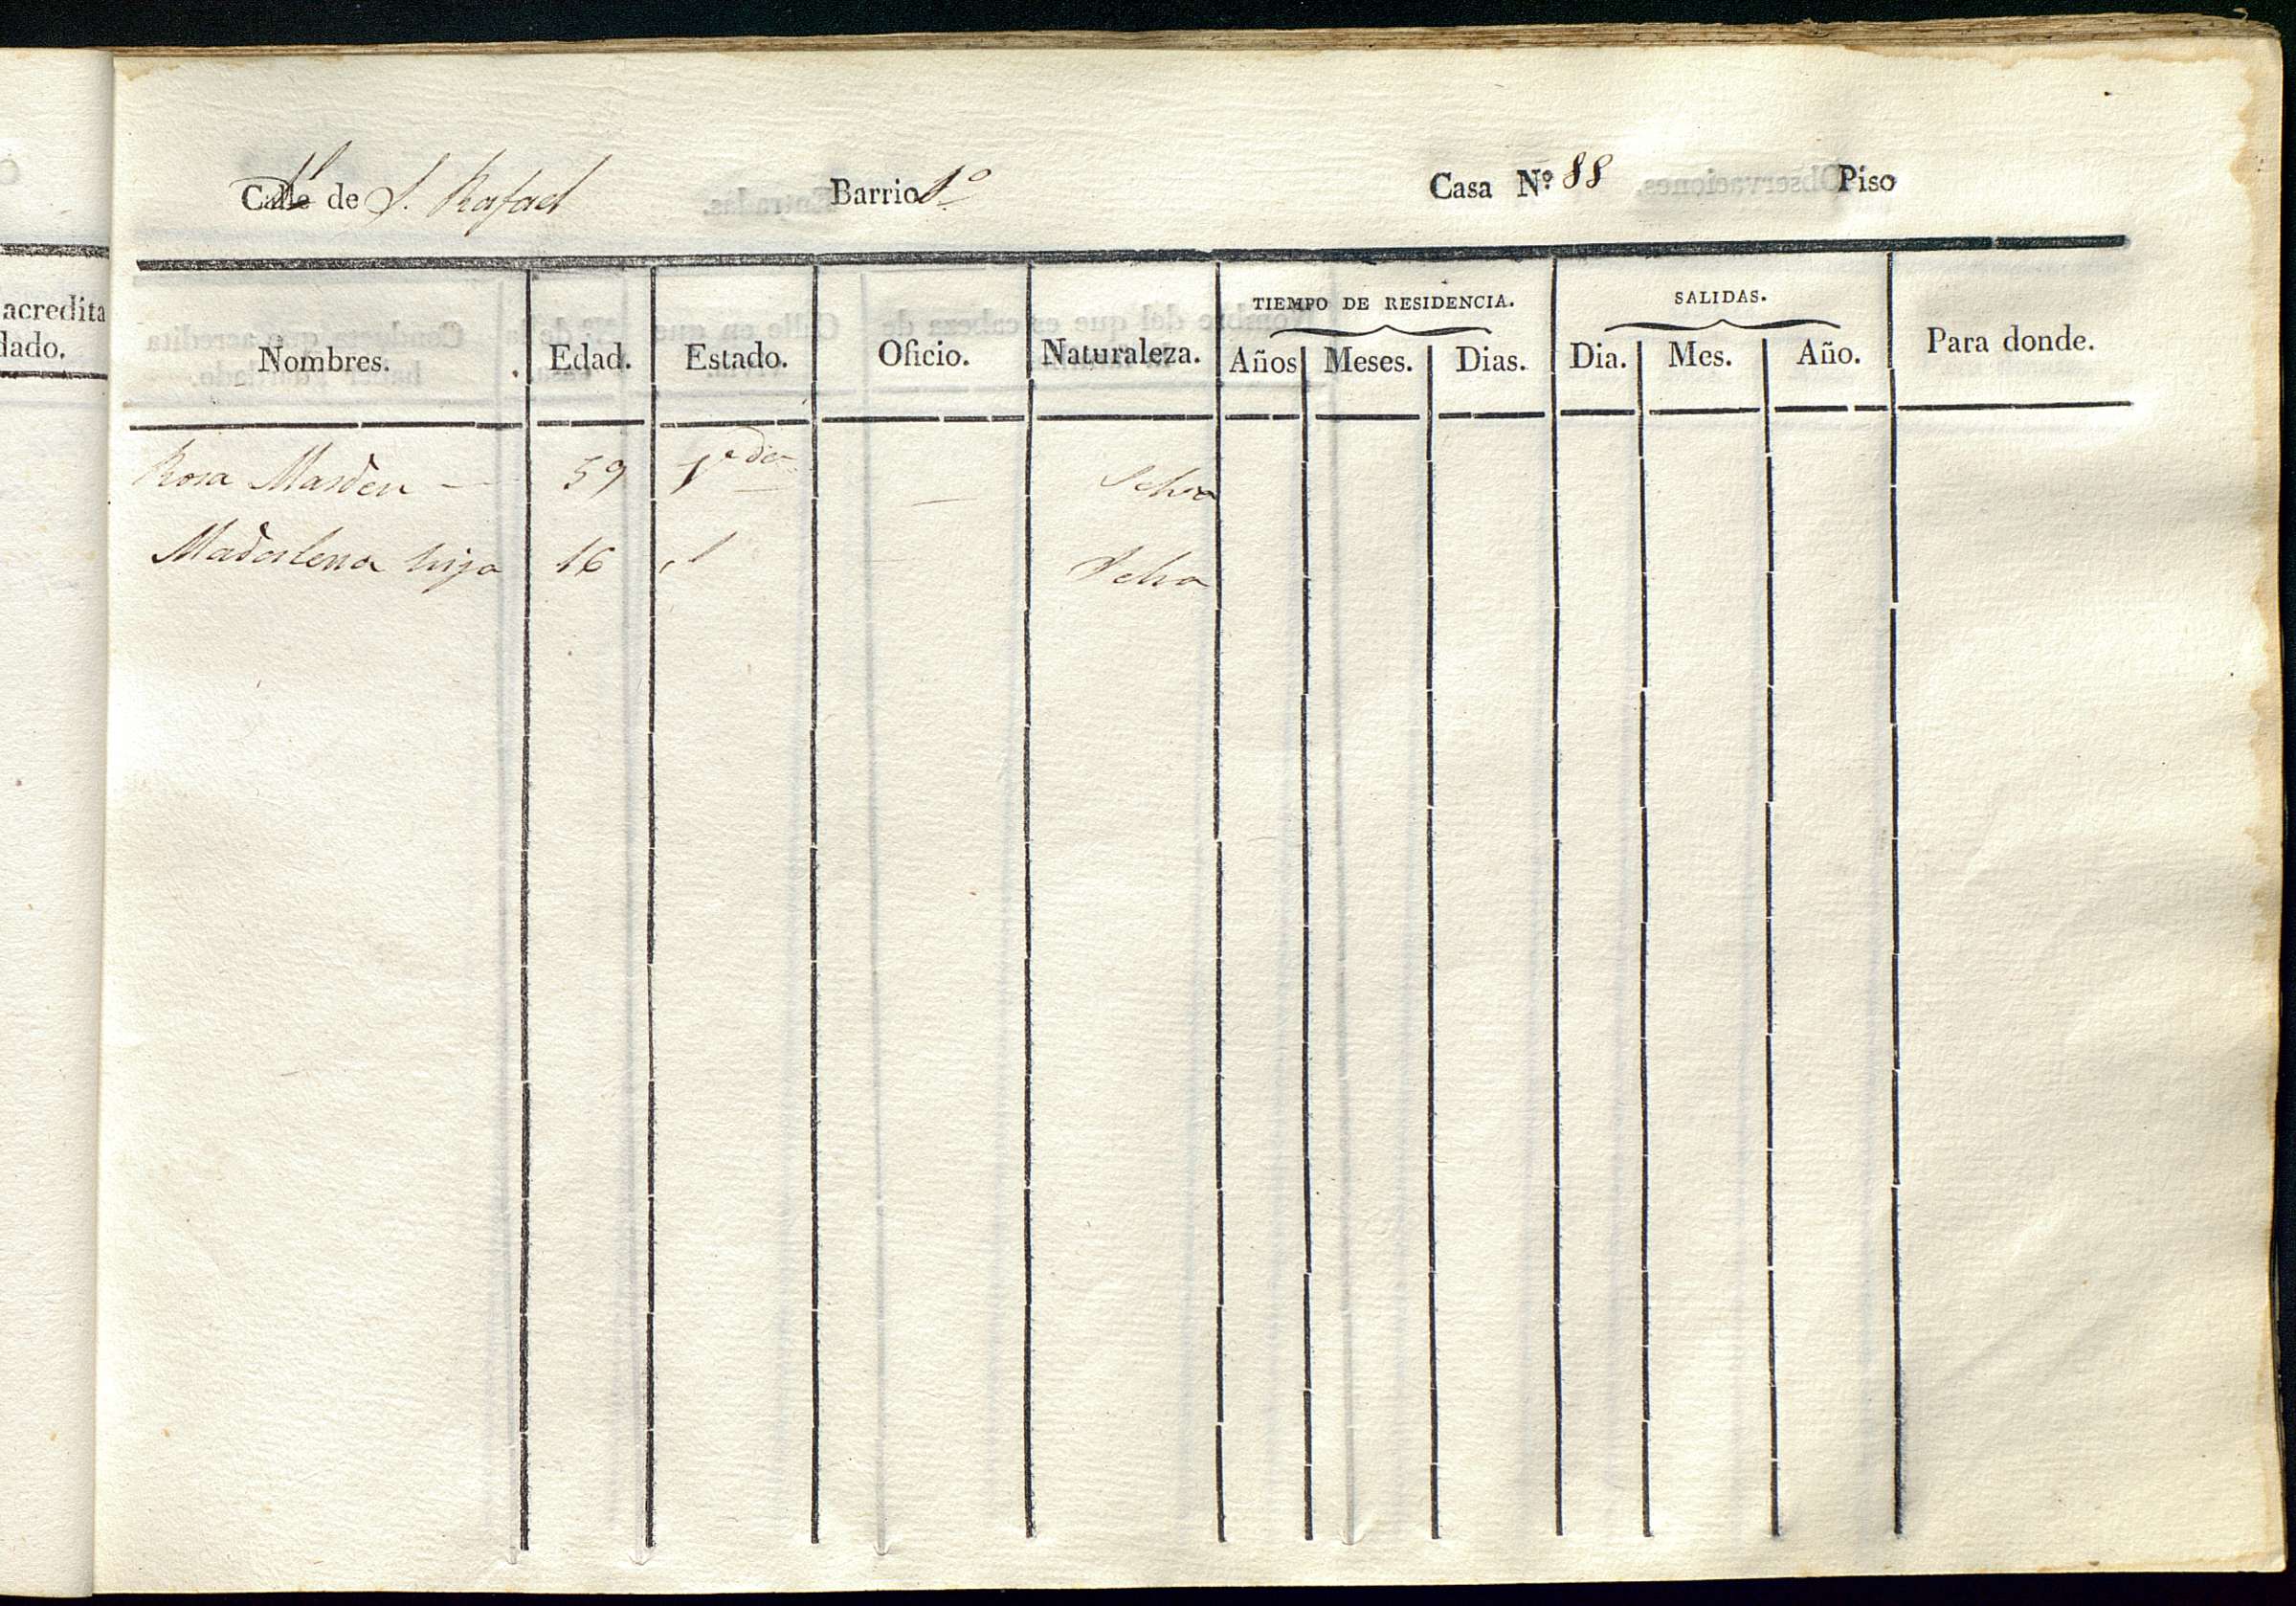 Calle de S. Rafael Barrio 1º Casa Nº 88 Piso
acredita
dado.
TIEMPO DE RESIDENCIA. SALIDAS.
Nombres. Edad. Estado. Oficio. Naturaleza. Años Meses. Dias. Dia. Mes. Año. Para donde.
Rosa Masdeu — 59 Vda — Selva
Madalena hija 16 Selva